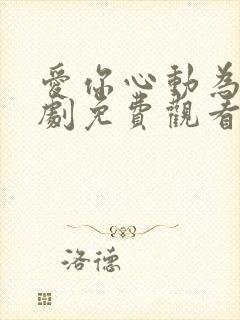 愛你心動為
劇免費觀看
洛德